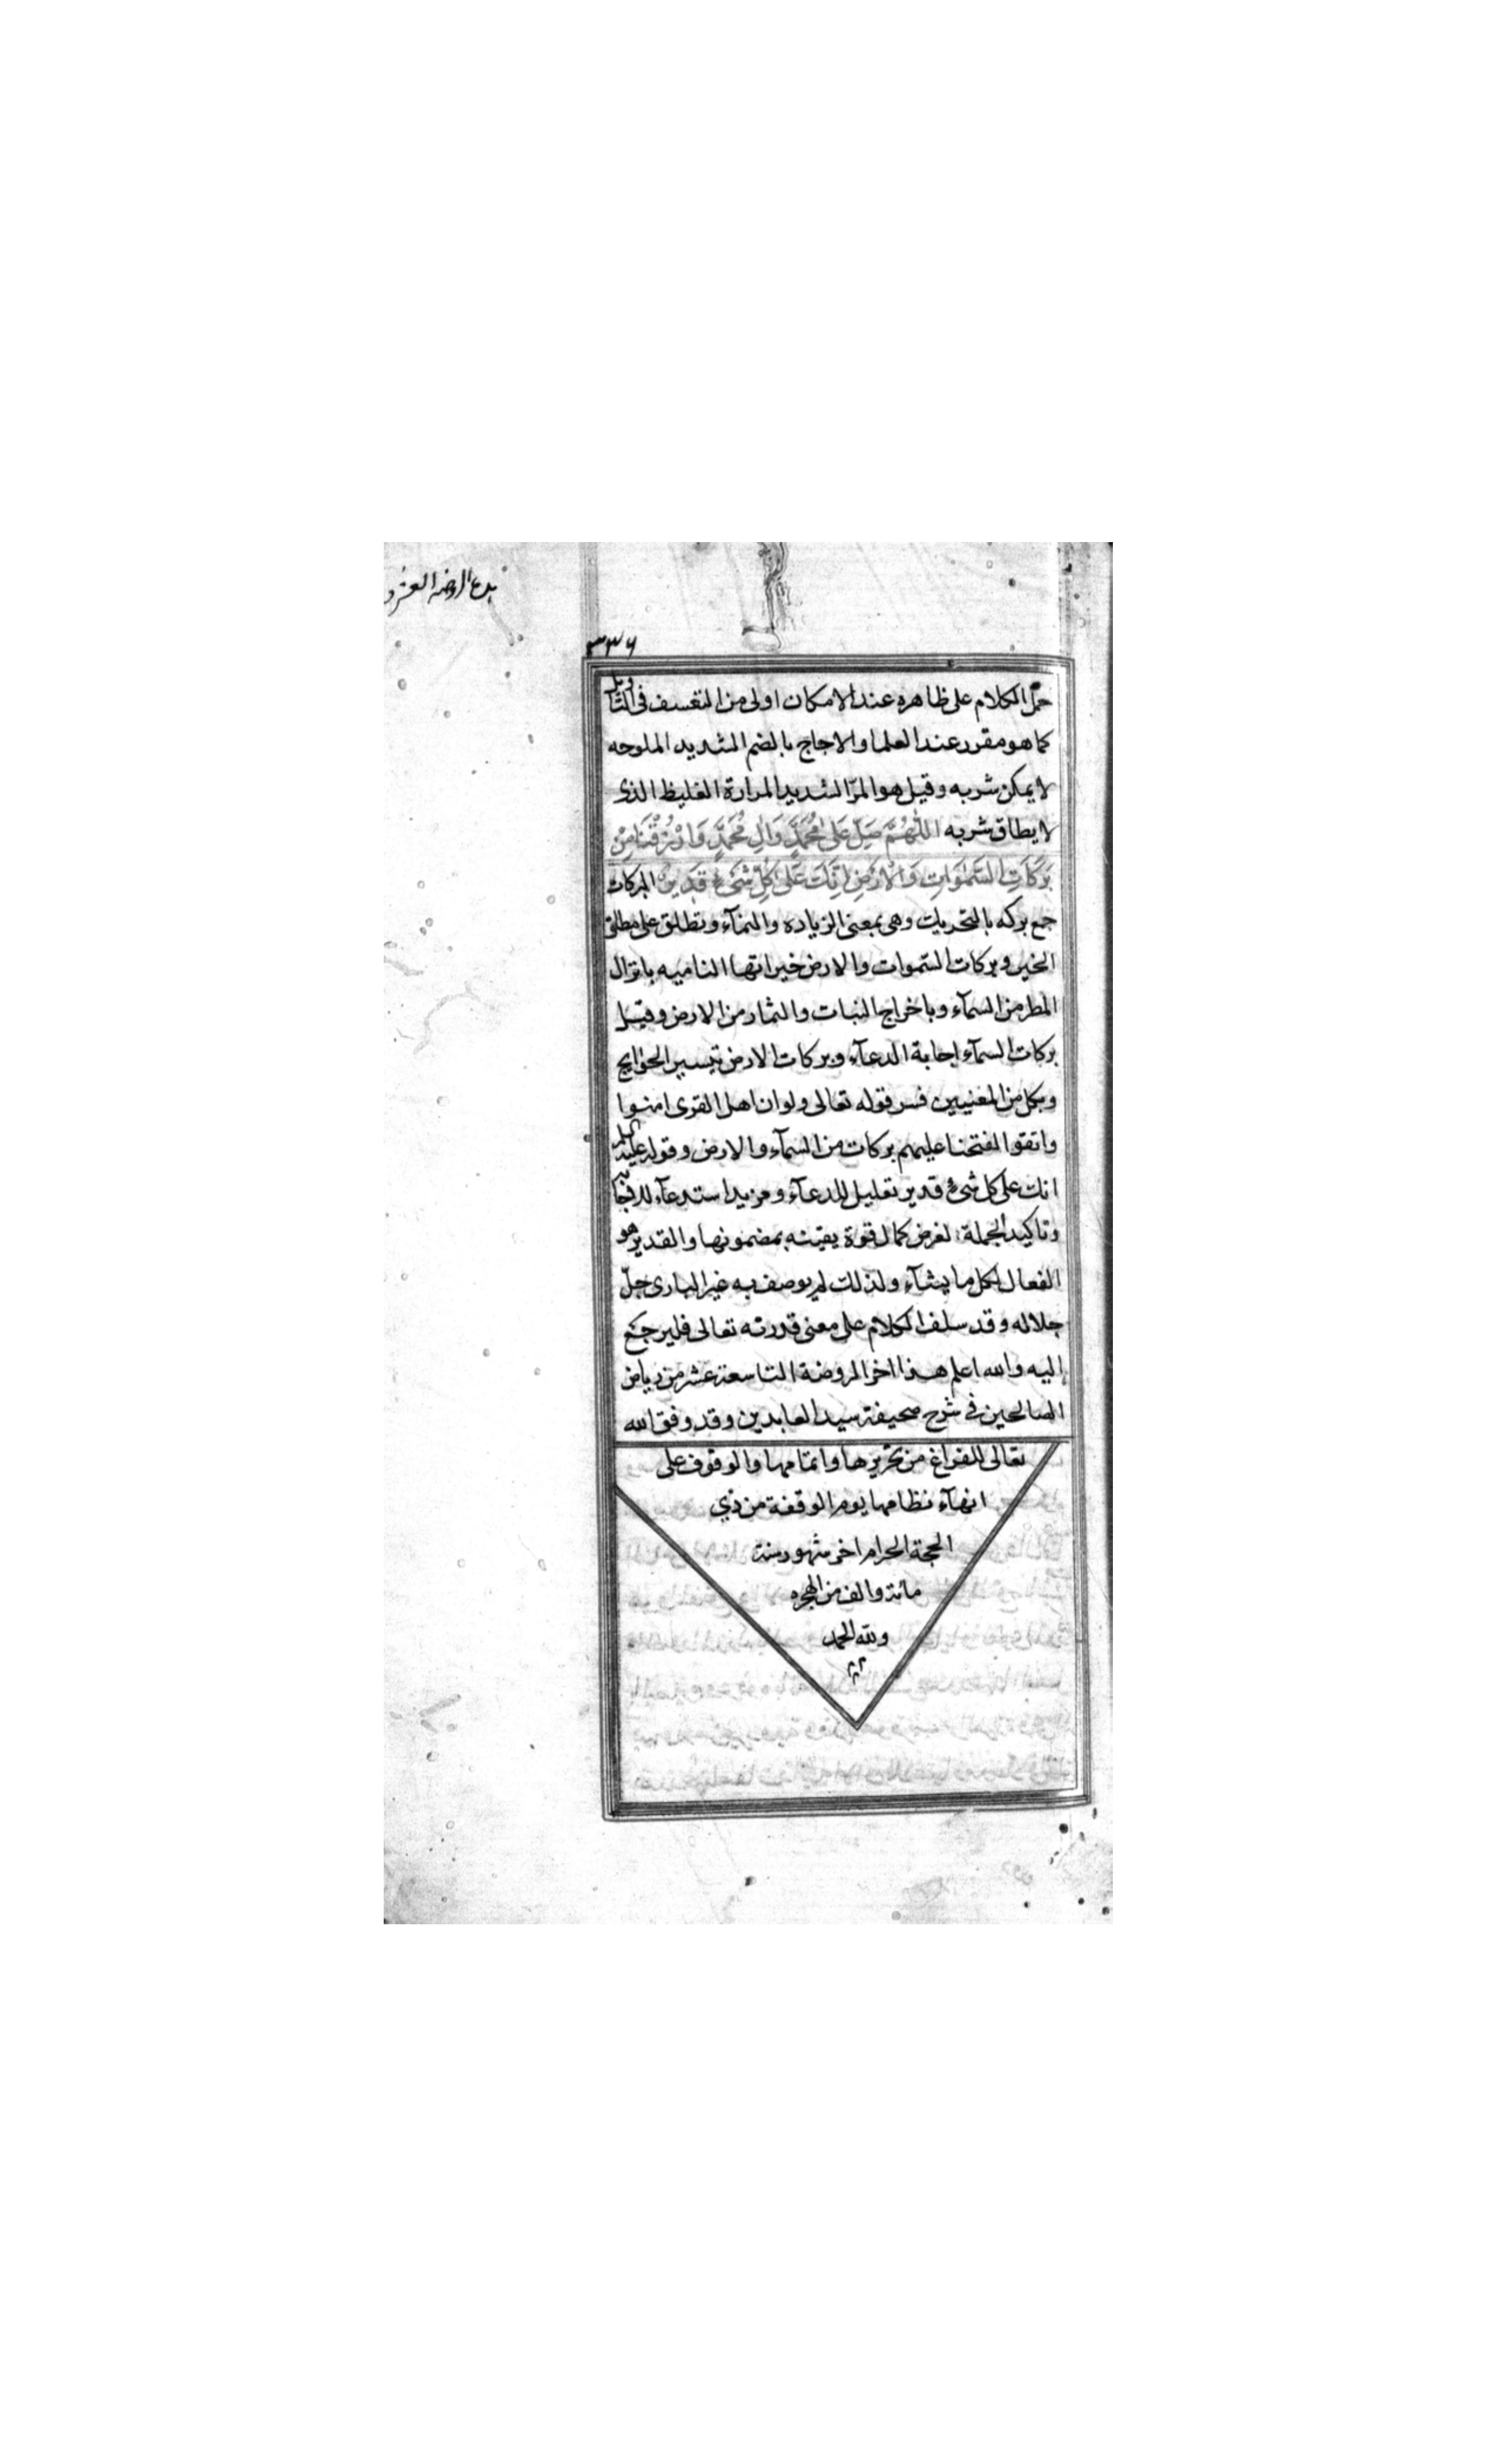 ٣٣٦
حمل الكلام على ظاهره عند الامكان اولى من التعسف فى التاويل
كما هو مقرر عند العلما والاجاج بالضم الشديد الملوحه
لا يمكن شربه وقيل هو المرّ الشديد المرارة الغليظ الذى
لا يطاق شربه اللّٰهُمَّ صَلِّ عَلى مُحَمَّدٍ وَالِ مُحَمَّدٍ وَارْزُقْنَا مِنْ
بَرَكَاتِ السَّمٰوَاتِ وَالْاَرْضِ اِنَّكَ عَلى كُلِّ شَىْءٍ قَدِيرٌ البركات
جمع بركه بالتحريك وهى بمعنى الزياده والنمآء وتطلق على مطلق
الخير وبركات السموات والارض خيراتها الناميه بانزال
المطر من السمآء وباخراج النبات والثمار من الارض وقيل
بركات السمآء اجابة الدعآء وبركات الارض تيسير الحوايج
وبكل من المعنيين فسر قوله تعالى ولو ان اهل القرى امنوا
واتقوا لفتحنا عليهم بركات من السمآء والارض وقوله عليه السلم
انك على كل شئ قدير تعليل للدعآء ومزيد استدعآء للاجابة
وتاكيد الجملة لغرض كمال قوة يقينه بمضمونها والقدير هو
الفعال لكل ما يشآء ولذلك لم يوصف به غير البارى جلّ
جلاله وقد سلف الكلام على معنى قدرته تعالى فليرجع
اليه والله اعلم هذا اخر الروضة التاسعة عشر من رياض
الصالحين فى شرح صحيفة سيد العابدين وقد وفق الله
تعالى للفراغ من تحريرها واتمامها والوقوف على
انهآء نظامها يوم الوقفة من ذي
الحجة الحرام اخر شهور سنة
مائة والف من الهجره
ولله الحمد